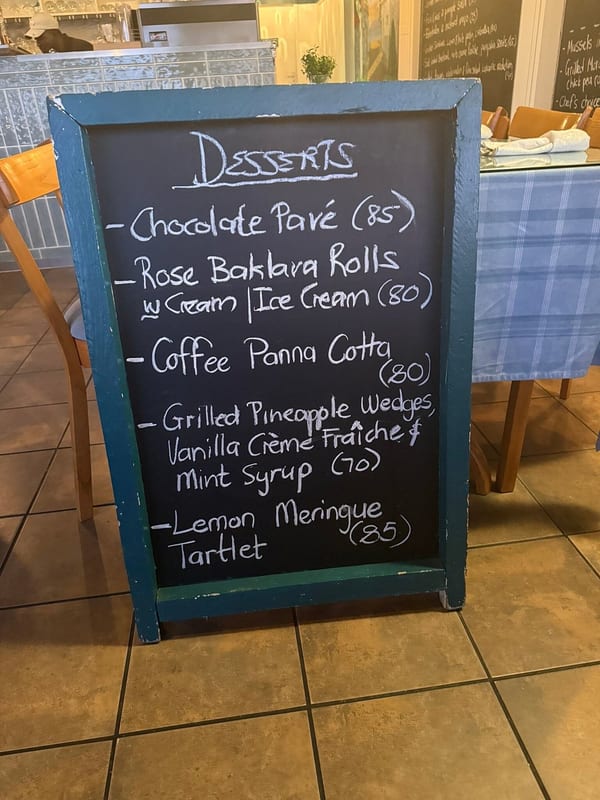 DESSERTS
- Chocolate Pavé (85)
- Rose Baklava Rolls
w Cream | Ice Cream (80)
- Coffee Panna Cotta
(80)
- Grilled Pineapple Wedges,
Vanilla Crème Fraîche &
Mint Syrup (70)
- Lemon Meringue
Tartlet (85)
- Mussels
- Grilled
- Chef's